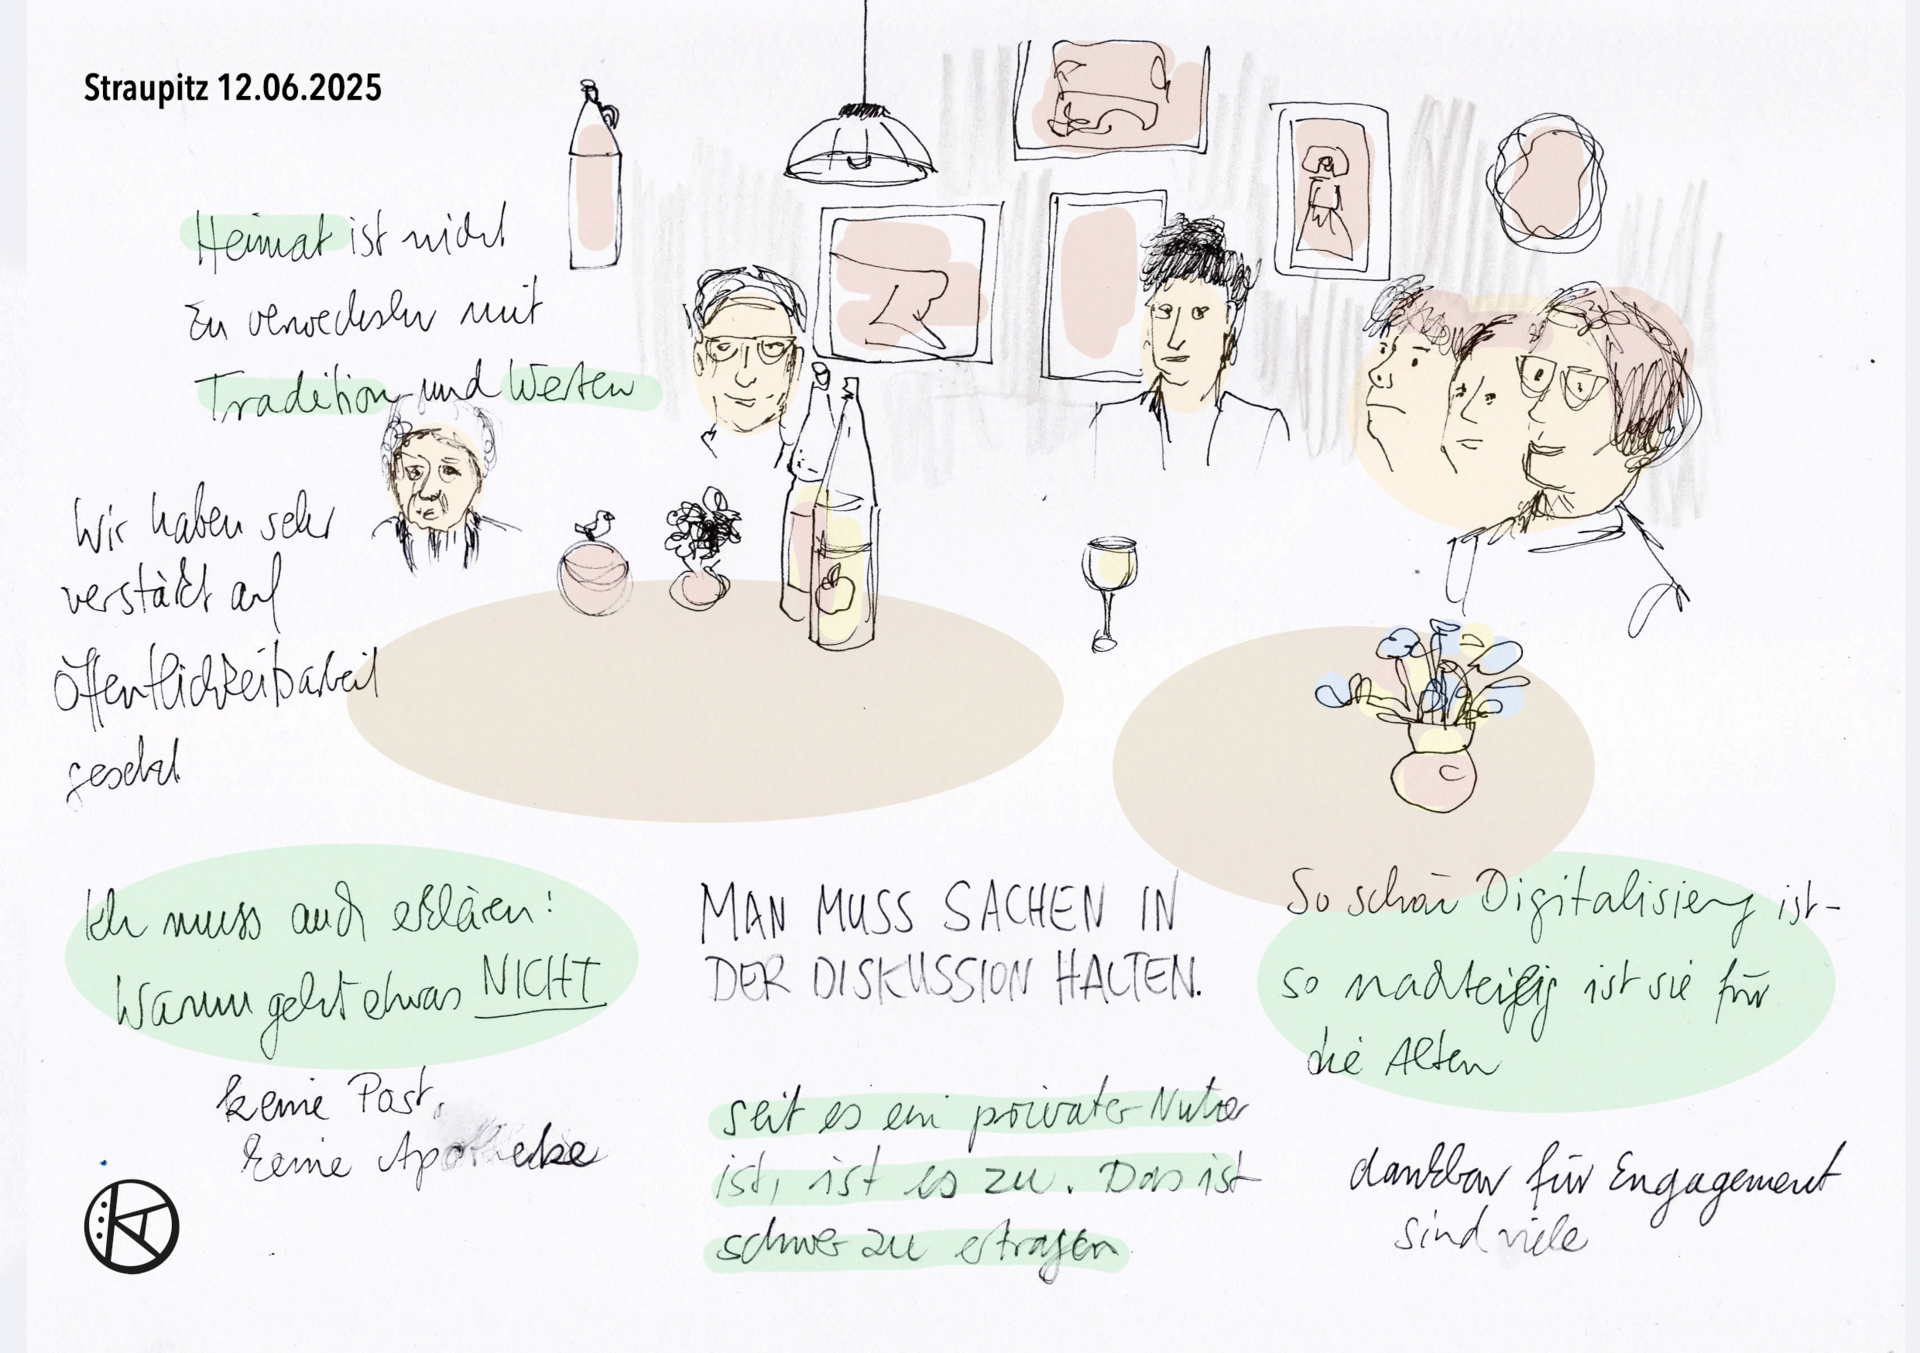 Straupitz 12.06.2025
Heimat ist nicht
zu verwechseln mit
Tradition und Werten
Wir haben sehr
verstärkt auf
Öffentlichkeitsarbeit
gesetzt
Ich muss auch erklären:
Warum geht etwas NICHT
keine Post,
keine Apotheke
MAN MUSS SACHEN IN
DER DISKUSSION HALTEN.
seit es ein privater Nutzer
ist, ist es zu. Das ist
schwer zu ertragen
So schön Digitalisierung ist-
so nachteilig ist sie für
die Alten
dankbar für Engagement
sind viele